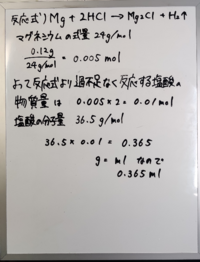 反応式) Mg + 2HCl → Mg2Cl + H2↑
マグネシウムの式量 24g/mol
0.12g / 24g/mol = 0.005 mol
よって反応式より過不足なく反応する塩酸の
物質量は 0.005×2=0.01mol
塩酸の分子量 36.5g/mol
36.5×0.01=0.365
g=ml なので
0.365ml